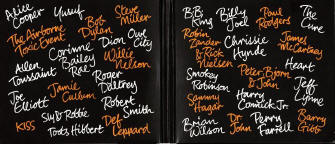 Alice
Cooper
Yusuf
Steve
Miller
The Airborne
Toxic Event
Bob
Dylan
Dion
Owl
City
Corinne
Bailey
Rae
Willie
Nelson
Allen
Toussaint
Roger
Daltrey
Jamie
Cullum
Joe
Elliott
Robert
Smith
Sly & Robbie
KISS
Toots Hibbert
Def
Leppard
B.B.
King
Billy
Joel
Paul
Rodgers
The
Cure
Robin
Zander
& Rick
Nielsen
Chrissie
Hynde
James
McCartney
Heart
Smokey
Robinson
Peter, Bjorn
& John
Jeff
Lynne
Sammy
Hagar
Harry
Connick Jr.
Brian
Wilson
Dr.
John
Perry
Farrell
Barry
Gibb